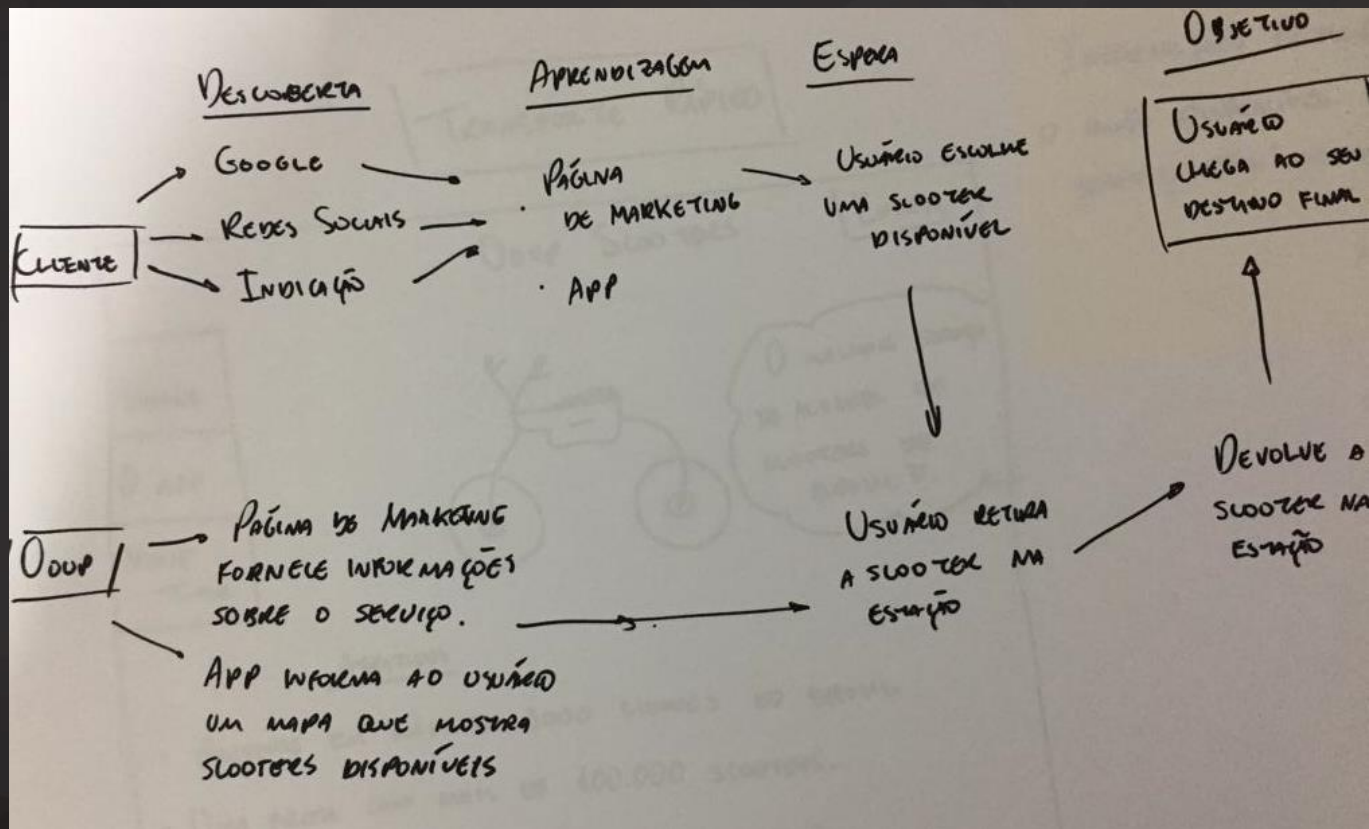 DESCOBERTA
APRENDIZAGEM
ESPERA
OBJETIVO
CLIENTE
GOOGLE
REDES SOCIAIS
INDICAÇÃO
· PÁGINA
DE MARKETING
· APP
USUÁRIO ESCOLHE
UMA SCOOTER
DISPONÍVEL
USUÁRIO
CHEGA AO SEU
DESTINO FINAL
OOUP
PÁGINA DE MARKETING
FORNECE INFORMAÇÕES
SOBRE O SERVIÇO.
APP INFORMA AO USUÁRIO
UM MAPA QUE MOSTRA
SCOOTERS DISPONÍVEIS
USUÁRIO RETIRA
A SCOOTER NA
ESTAÇÃO
DEVOLVE A
SCOOTER NA
ESTAÇÃO
TRANSPORTE RÁPIDO
SCOOTERS
600.000 SCOOTERS.